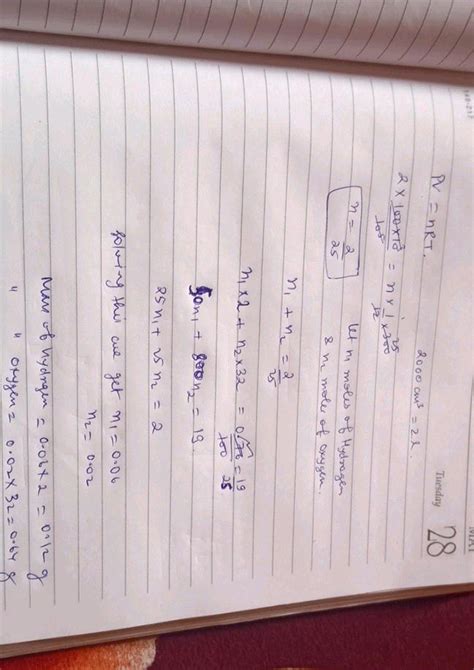 Tuesday
28
2000 cm³ = 2L.
PV = nRT.
2 × 100×10³ / 10⁵ = n × 1/12 × 300 25
n = 2/25
let n moles of Hydrogen
& n₂ moles of oxygen.
n₁ + n₂ = 2/25
n₁×2 + n₂×32 = 0.76/100 = 19/25
50n₁ + 800n₂ = 19
25n₁ + 25n₂ = 2
solving this we get n₁ = 0.06
n₂ = 0.02
Mass of hydrogen = 0.06×2 = 0.12 g
" " oxygen = 0.02×32 = 0.64 g